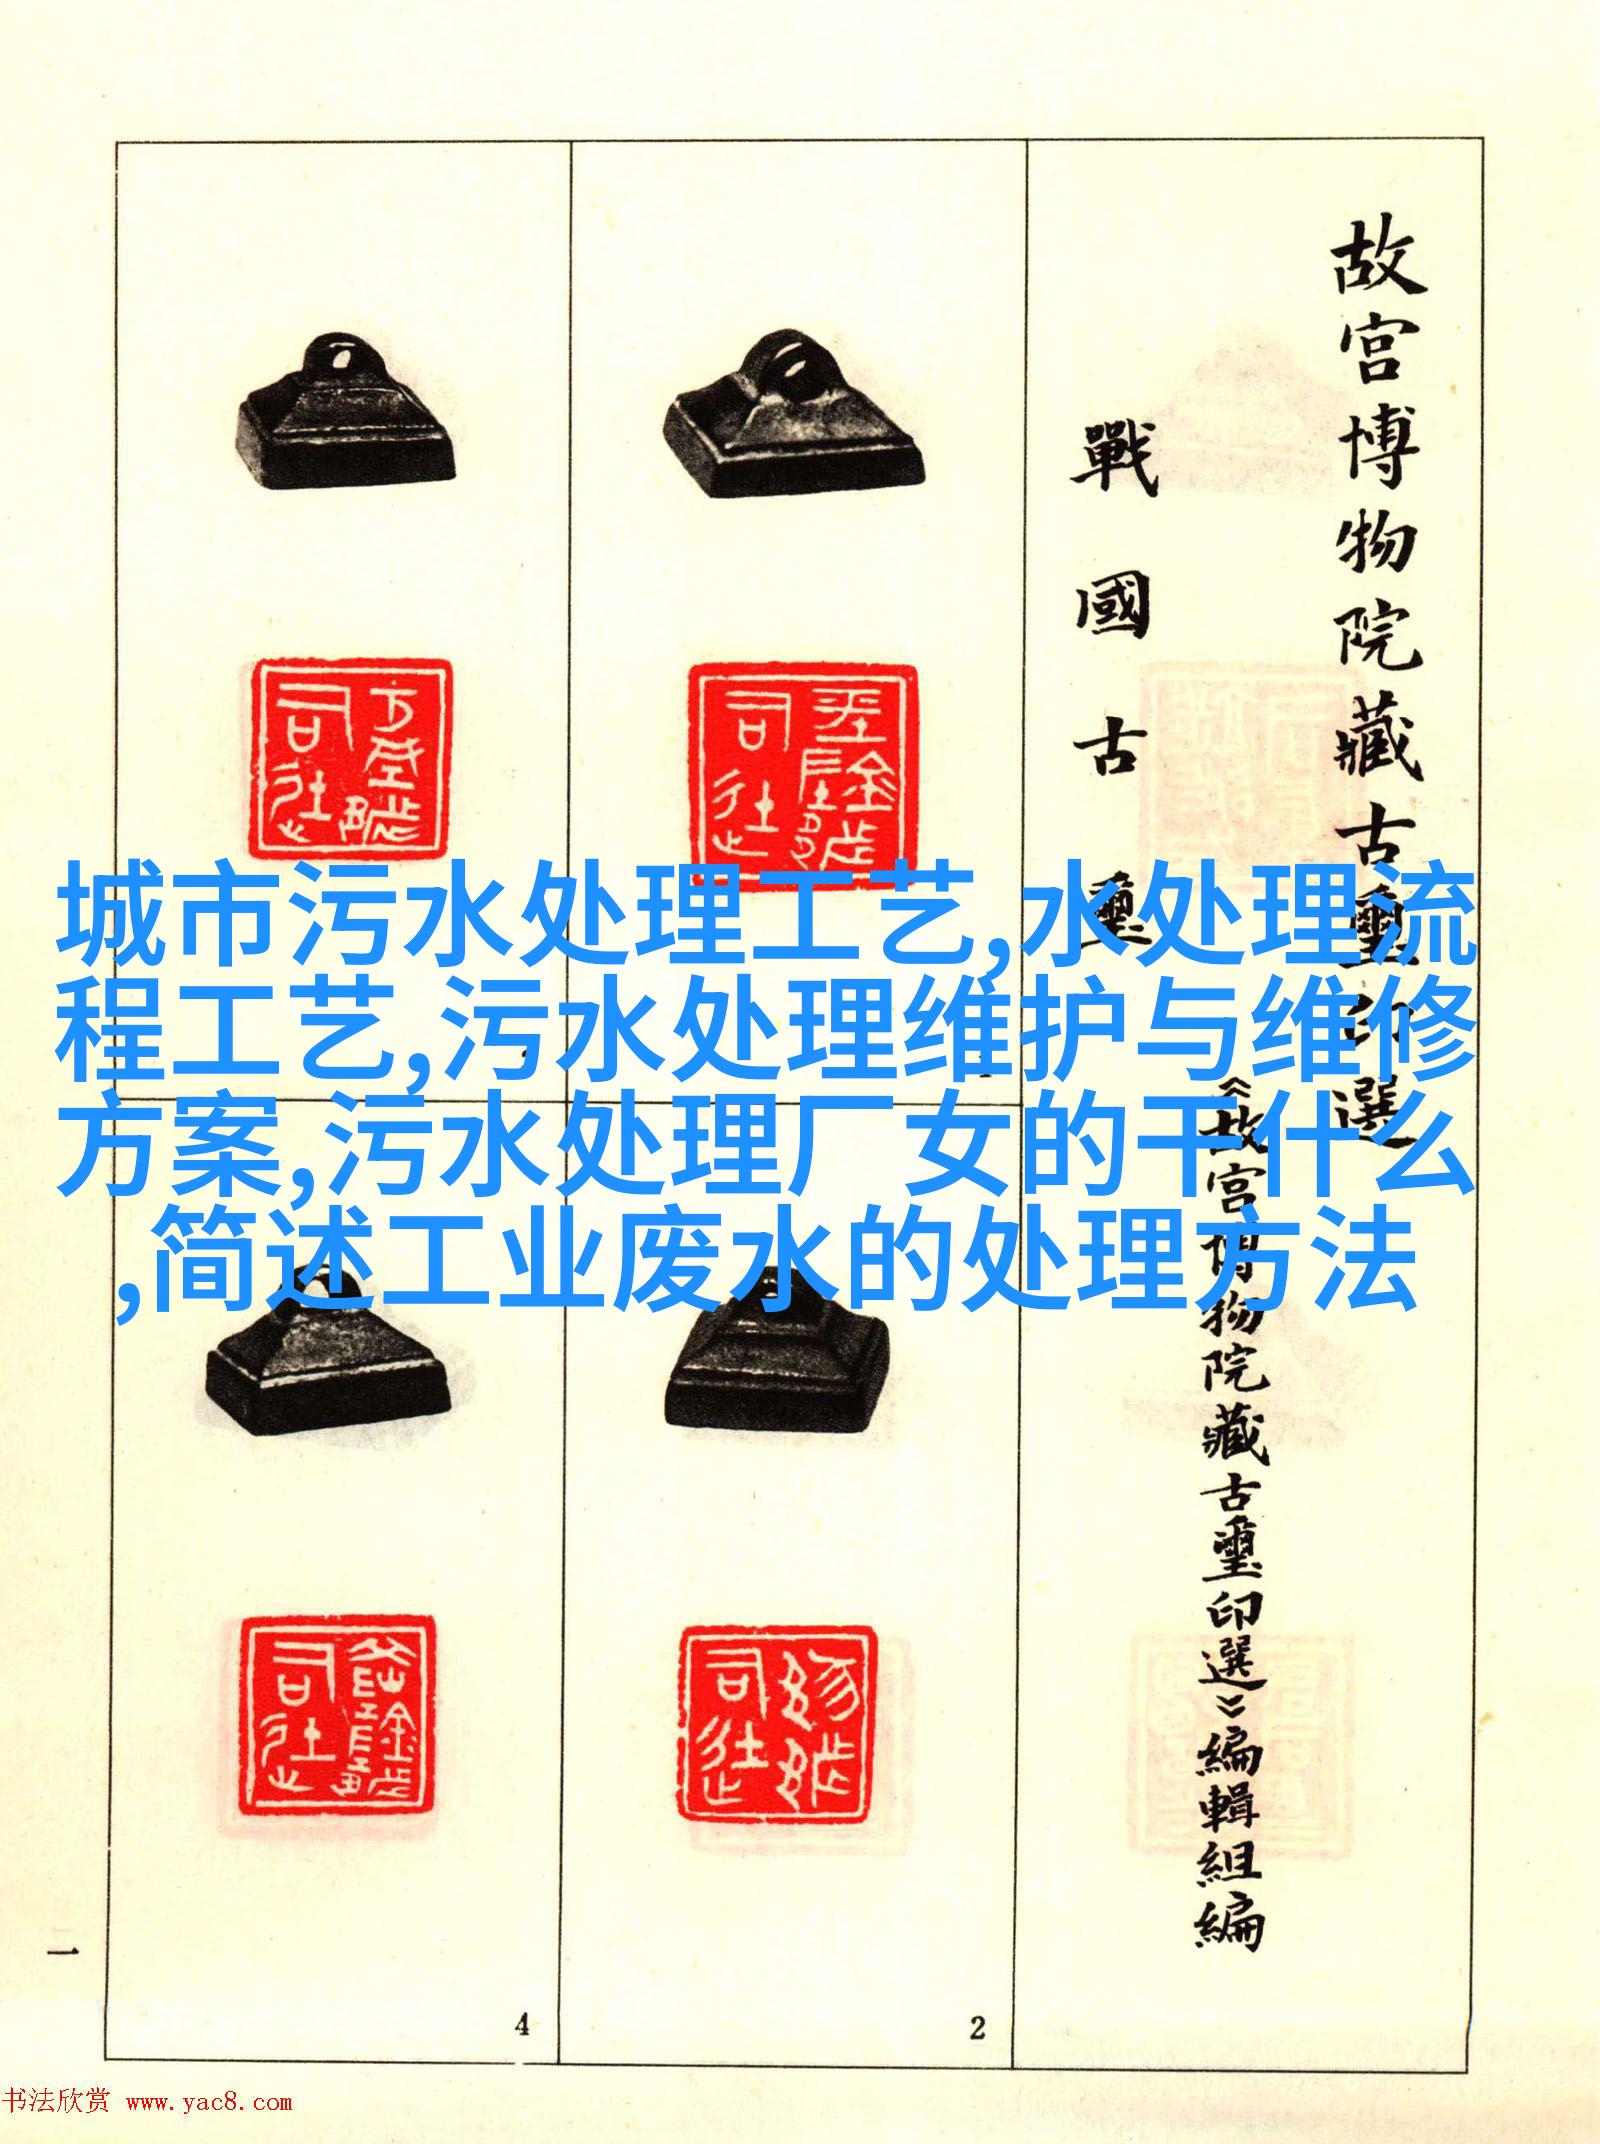 故宫博物院藏古璽印選
戰國古璽
《故宫博物院藏古璽印選》編輯組編
城市污水处理工艺,水处理流
程工艺,污水处理维护与维修
方案,污水处理厂女的干什么
,简述工业废水的处理方法
2
4
一
书法欣赏 www.yac8.com